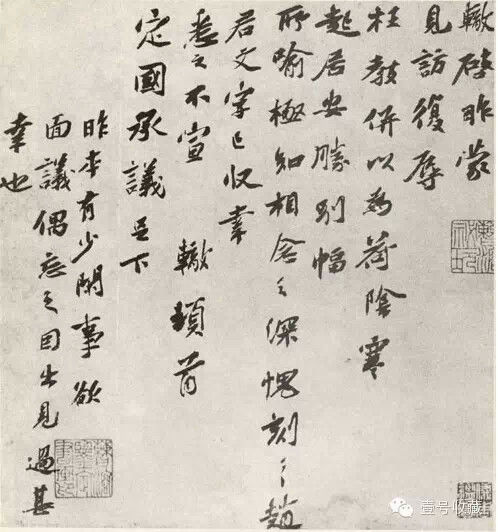 轍啓昨蒙
見訪復辱
枉教併以為荷陰寒
起居安勝別幅
所喻極知相念之深愧刻〻趙
君文字已收幸
悉之不宣 轍頓首
定國承議足下
昨來有少閑事欲
面議偶忘之因出見過甚
幸也
壹号收藏